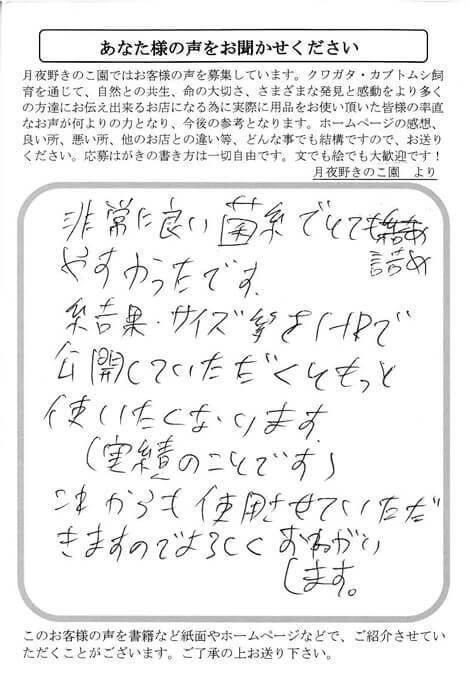 あなた様の声をお聞かせください
月夜野きのこ園ではお客様の声を募集しています。クワガタ・カブトムシ飼
育を通じて、自然との共生、命の大切さ、さまざまな発見と感動をより多く
の方達にお伝え出来るお店になる為に実際に用品をお使い頂いた皆様の率直
なお声が何よりの力となり、今後の参考となります。ホームページの感想、
良い所、悪い所、他のお店との違い等、どんな事でも結構ですので、お送り
ください。応募はがきの書き方は一切自由です。文でも絵でも大歓迎です！
月夜野きのこ園　より
非常に良い菌糸でとても
詰め
やすかったです。
結果・サイズ等をHPで
公開していただくともっと
使いたくなります
(実績のことです)
これからも使用させていただ
きますのでよろしくおねがい
します。
このお客様の声を書籍など紙面やホームページなどで、ご紹介させてい
ただくことがございます。ご了承の上お送り下さい。